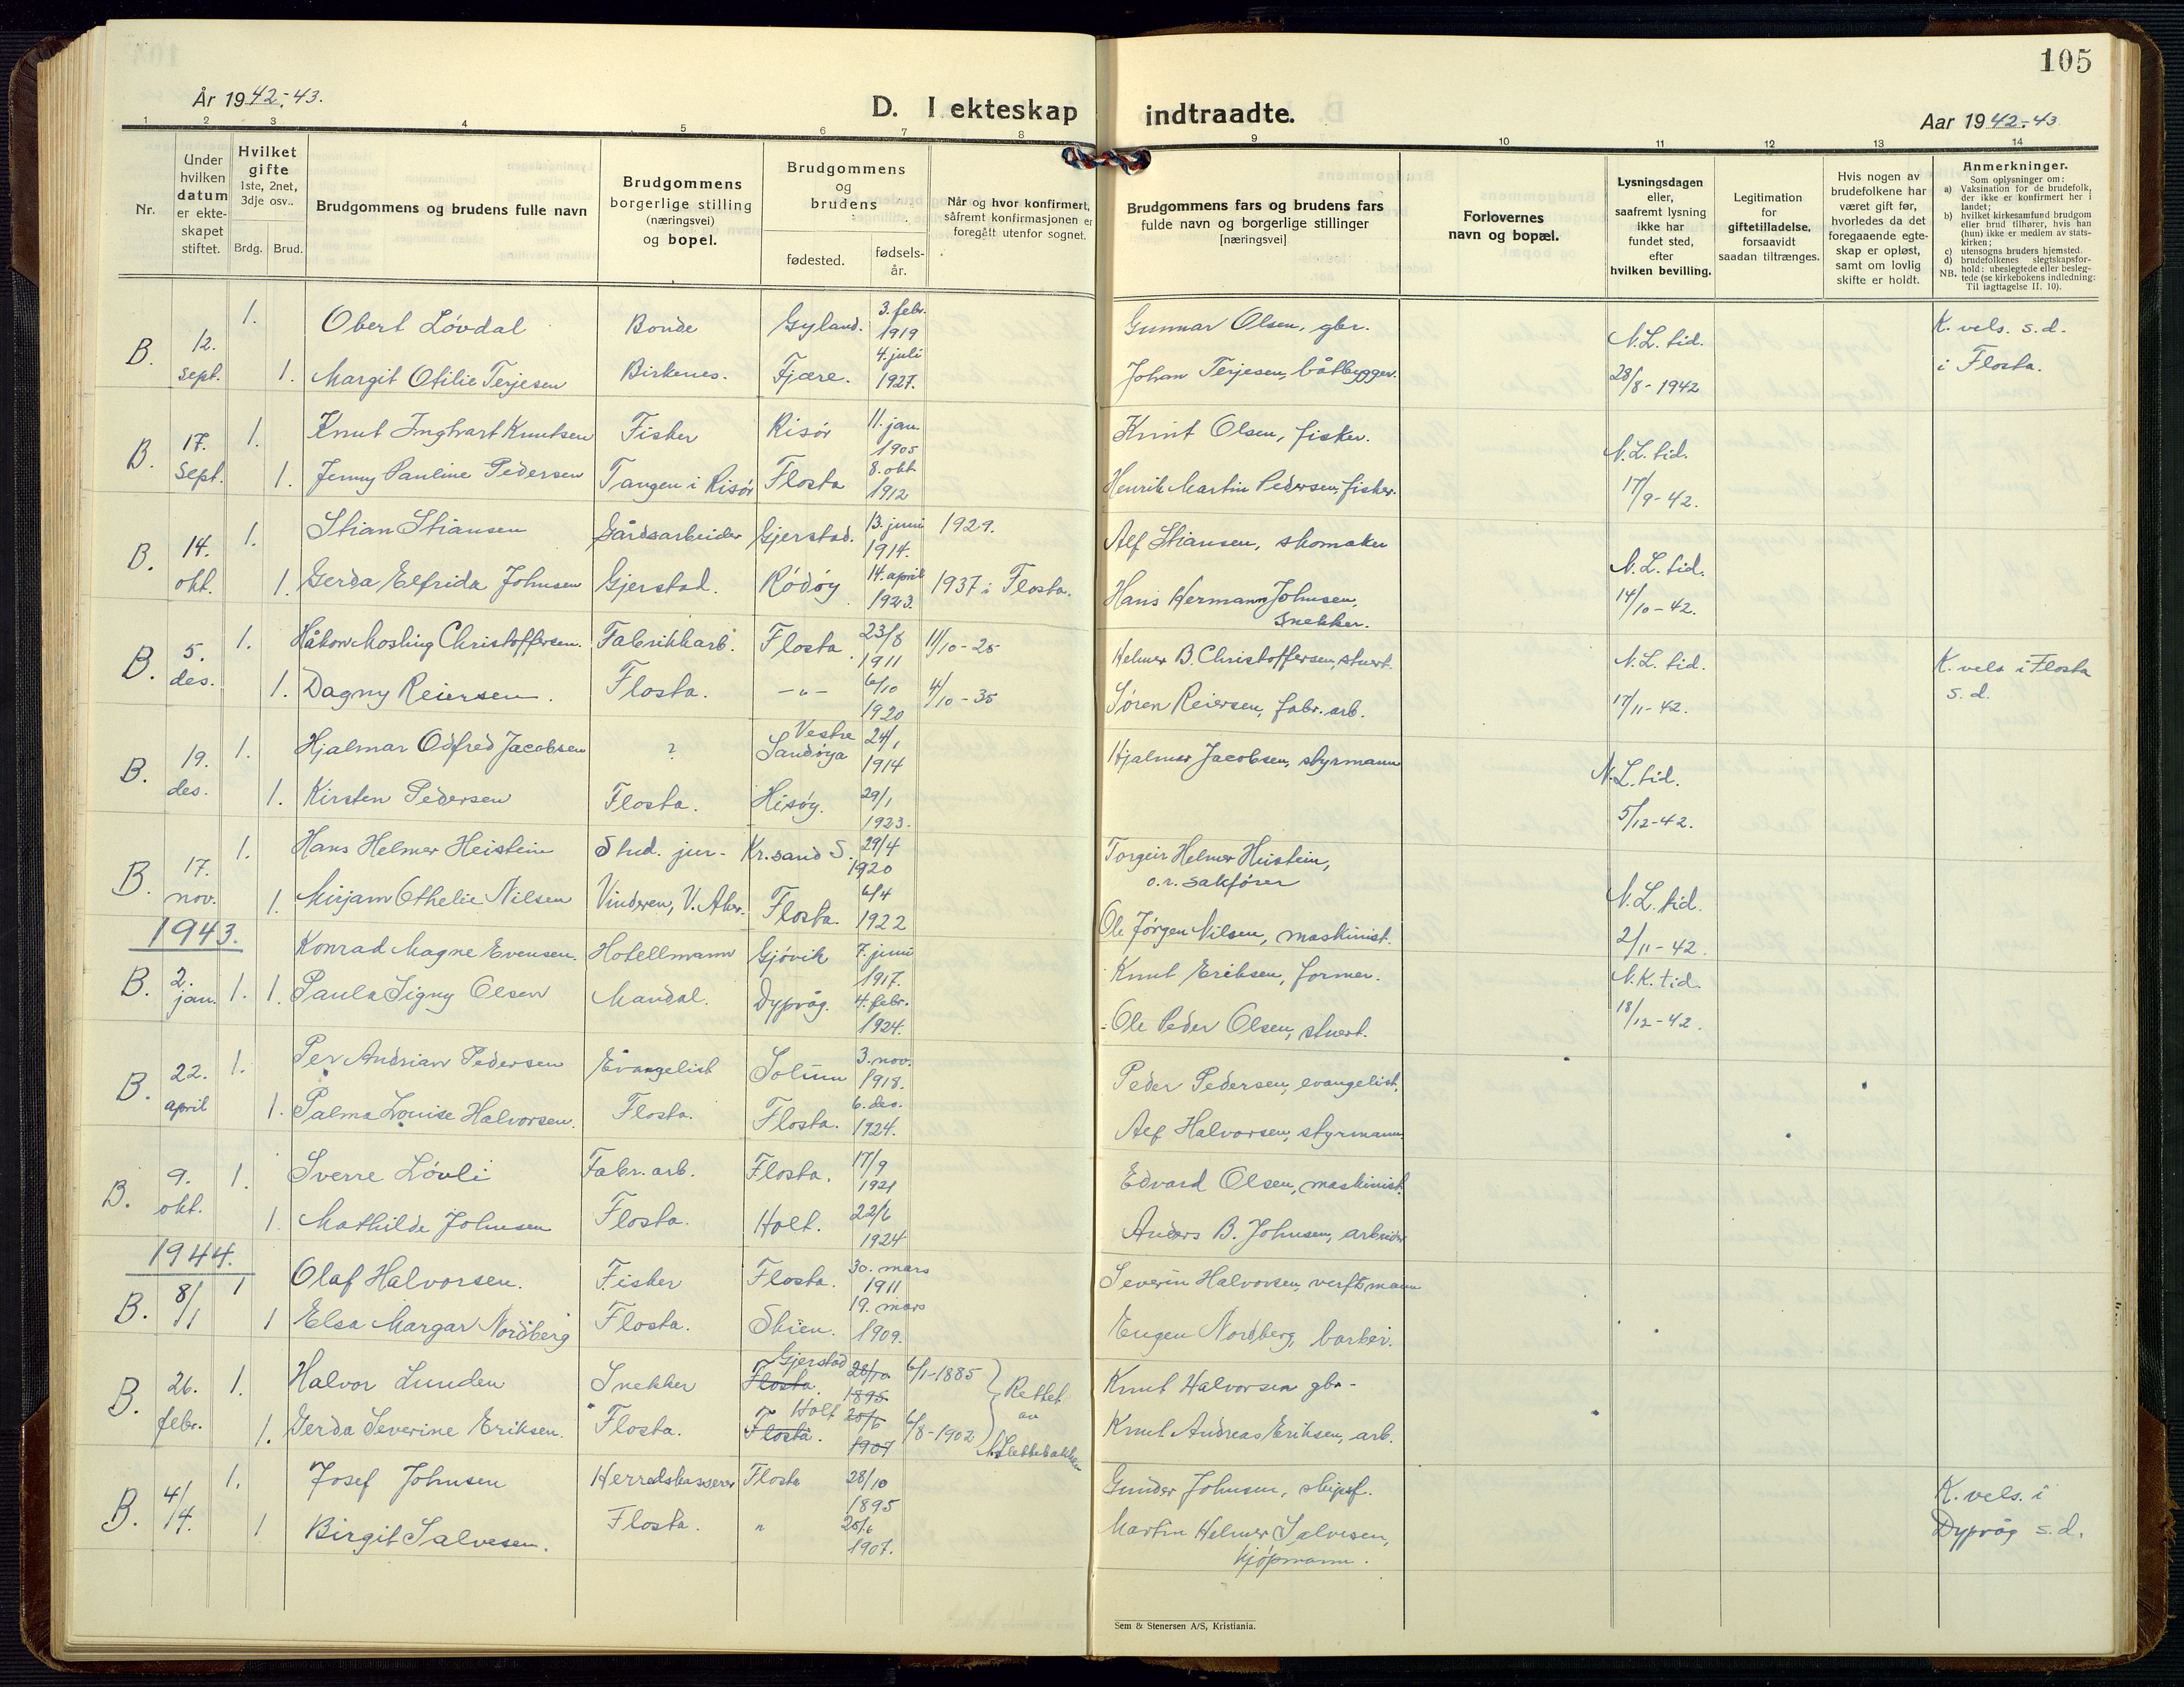 105
År 1942-43.
D. I ekteskap indtraadte.
Aar 1942-43
1 2 3 4 5 6 7 8 9 10 11 12 13 14
Nr.
Under hvilken datum er ekteskapet stiftet.
Hvilket gifte 1ste, 2net, 3dje osv..
Brdg. Brud.
Brudgommens og brudens fulle navn
Brudgommens borgerlige stilling (næringsvei) og bopel.
Brudgommens og brudens
fødested. fødselsår.
Når og hvor konfirmert, såfremt konfirmasjonen er foregått utenfor sognet.
Brudgommens fars og brudens fars fulde navn og borgerlige stillinger [næringsvei]
Forlovernes navn og bopæl.
Lysningsdagen eller, saafremt lysning ikke har fundet sted, efter hvilken bevilling.
Legitimation for giftetilladelse, forsaavidt saadan tiltrænges.
Hvis nogen av brudefolkene har været gift før, hvorledes da det foregaaende egteskap er opløst, samt om lovlig skifte er holdt.
Anmerkninger.
Som oplysninger om:
a) Vaksination for de brudefolk, der ikke er konfirmert her i landet;
b) hvilket kirkesamfund brudgom eller brud tilhører, hvis han (hun) ikke er medlem av statskirken;
c) utensogns bruders hjemsted.
d) brudefolkenes slegtskapsforhold: ubeslegtede eller beslegtede (se kirkebokens indledning: Til iagttagelse II. 10).
NB.
B. 12. sept. 1. Obert Løvdal Bonde Gyland. 3. febr. 1919 Gunnar Olsen, gbr. N.L. tid. K. vels. s.d.
1. Margit Otilie Terjesen Birkenes. Fjære. 4. juli 1927. Johan Terjesen, båtbygger. 28/8-1942 i Flosta.
B. 17. sept. 1. Knut Ingvart Knutsen Fisker Risør 11. jan 1905 Knut Olsen, fisker. N.L. tid.
1. Jenny Pauline Pedersen Tangen i Risør Flosta 8. okt 1912 Henrik Martin Pedersen, fisker. 17/9-42.
B. 14. okt. 1. Stian Stiansen Gårdsarbeider Gjerstad. 13. juni 1914. 1929. Alf Stiansen, skomaker N.L. tid.
1. Gerda Elfrida Johnsen Gjerstad. Rødøy 14. april 1923. 1937 i Flosta. Hans Hermann Johnsen, snekker. 14/10-42.
B. 5. des. 1. Håkon Mosling Christoffersen. Fabrikkarb. Flosta 23/8 1911 11/10-25 Helmer B. Christoffersen, stuert. N.L. tid. K. vels i Flosta
1. Dagny Reiersen. Flosta. -"- 6/10 1920 4/10-35 Søren Reiersen, fabr. arb. 17/11-42. s.d.
B. 19. des. 1. Hjalmar Odfred Jacobsen ? Vestre Sandøya 24/1 1914 Hjalmar Jacobsen, styrmann N.L. tid.
1. Kirsten Pedersen Flosta. Hisøy. 29/1 1923. 5/12-42.
B. 17. nov. 1. Hans Helmer Heistein Stud. jur. Kr.sand S. 29/4 1920 Torgeir Helmer Heistein, o.r. sakfører N.L. tid.
1. Mirjam Othelie Nilsen Vinderen, V. Aker. Flosta. 6/4 1922 Ole Jørgen Nilsen, maskinist. 2/11-42.
1943.
B. 2. jan. 1. Konrad Magne Evensen. Hotellmann Gjøvik 7. juni 1917. Knut Eriksen, former. N.K. tid.
1. Paula Signy Olsen Mandal. Dypvåg. 4. febr. 1924. Ole Peder Olsen, stuert. 18/12-42.
B. 22. april 1. Per Andrian Pedersen Evangelist Solum 3. nov. 1918. Peder Pedersen, evangelist.
1. Palma Louise Halvorsen. Flosta. Flosta. 6. des. 1924. Alf Halvorsen, styrmann
B. 9. okt. 1. Sverre Løvli Fabr. arb. Flosta. 17/9 1921 Edvard Olsen, maskinist.
1. Mathilde Johnsen Flosta. Holt. 22/6 1924 Anders B. Johnsen, arbeider
1944.
B. 8/1 1 Olaf Halvorsen. Fisker Flosta. 30. mars 1911 Severin Halvorsen, verftsmann
1 Elsa Margar Nordberg Flosta. Skien. 19. mars 1909. Eugen Nordberg, barber.
B. 26. febr. 1. Halvor Lunden Snekker Gjerstad Flosta. 28/10 1895 6/1-1885 Rettet av Knut Halvorsen gbr.
1. Gerda Severine Eriksen. Flosta. Holt Flosta. 25/6 1907 6/8-1902 Knut Andreas Eriksen, arb.
B. 4/4. 1. Josef Johnsen Herredskasserer Flosta 28/10 1895 Gunder Johnsen, skipsf. K. vels. i
1 Birgit Salvesen. Flosta. " 25/6 1907. Martin Helmer Salvesen, kjøpmann. Dypvåg s.d.
Sem & Stenersen A/S, Kristiania.